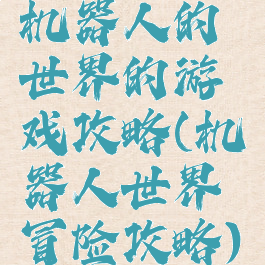 机器人的
世界的游
戏攻略(机
器人世界
冒险攻略)